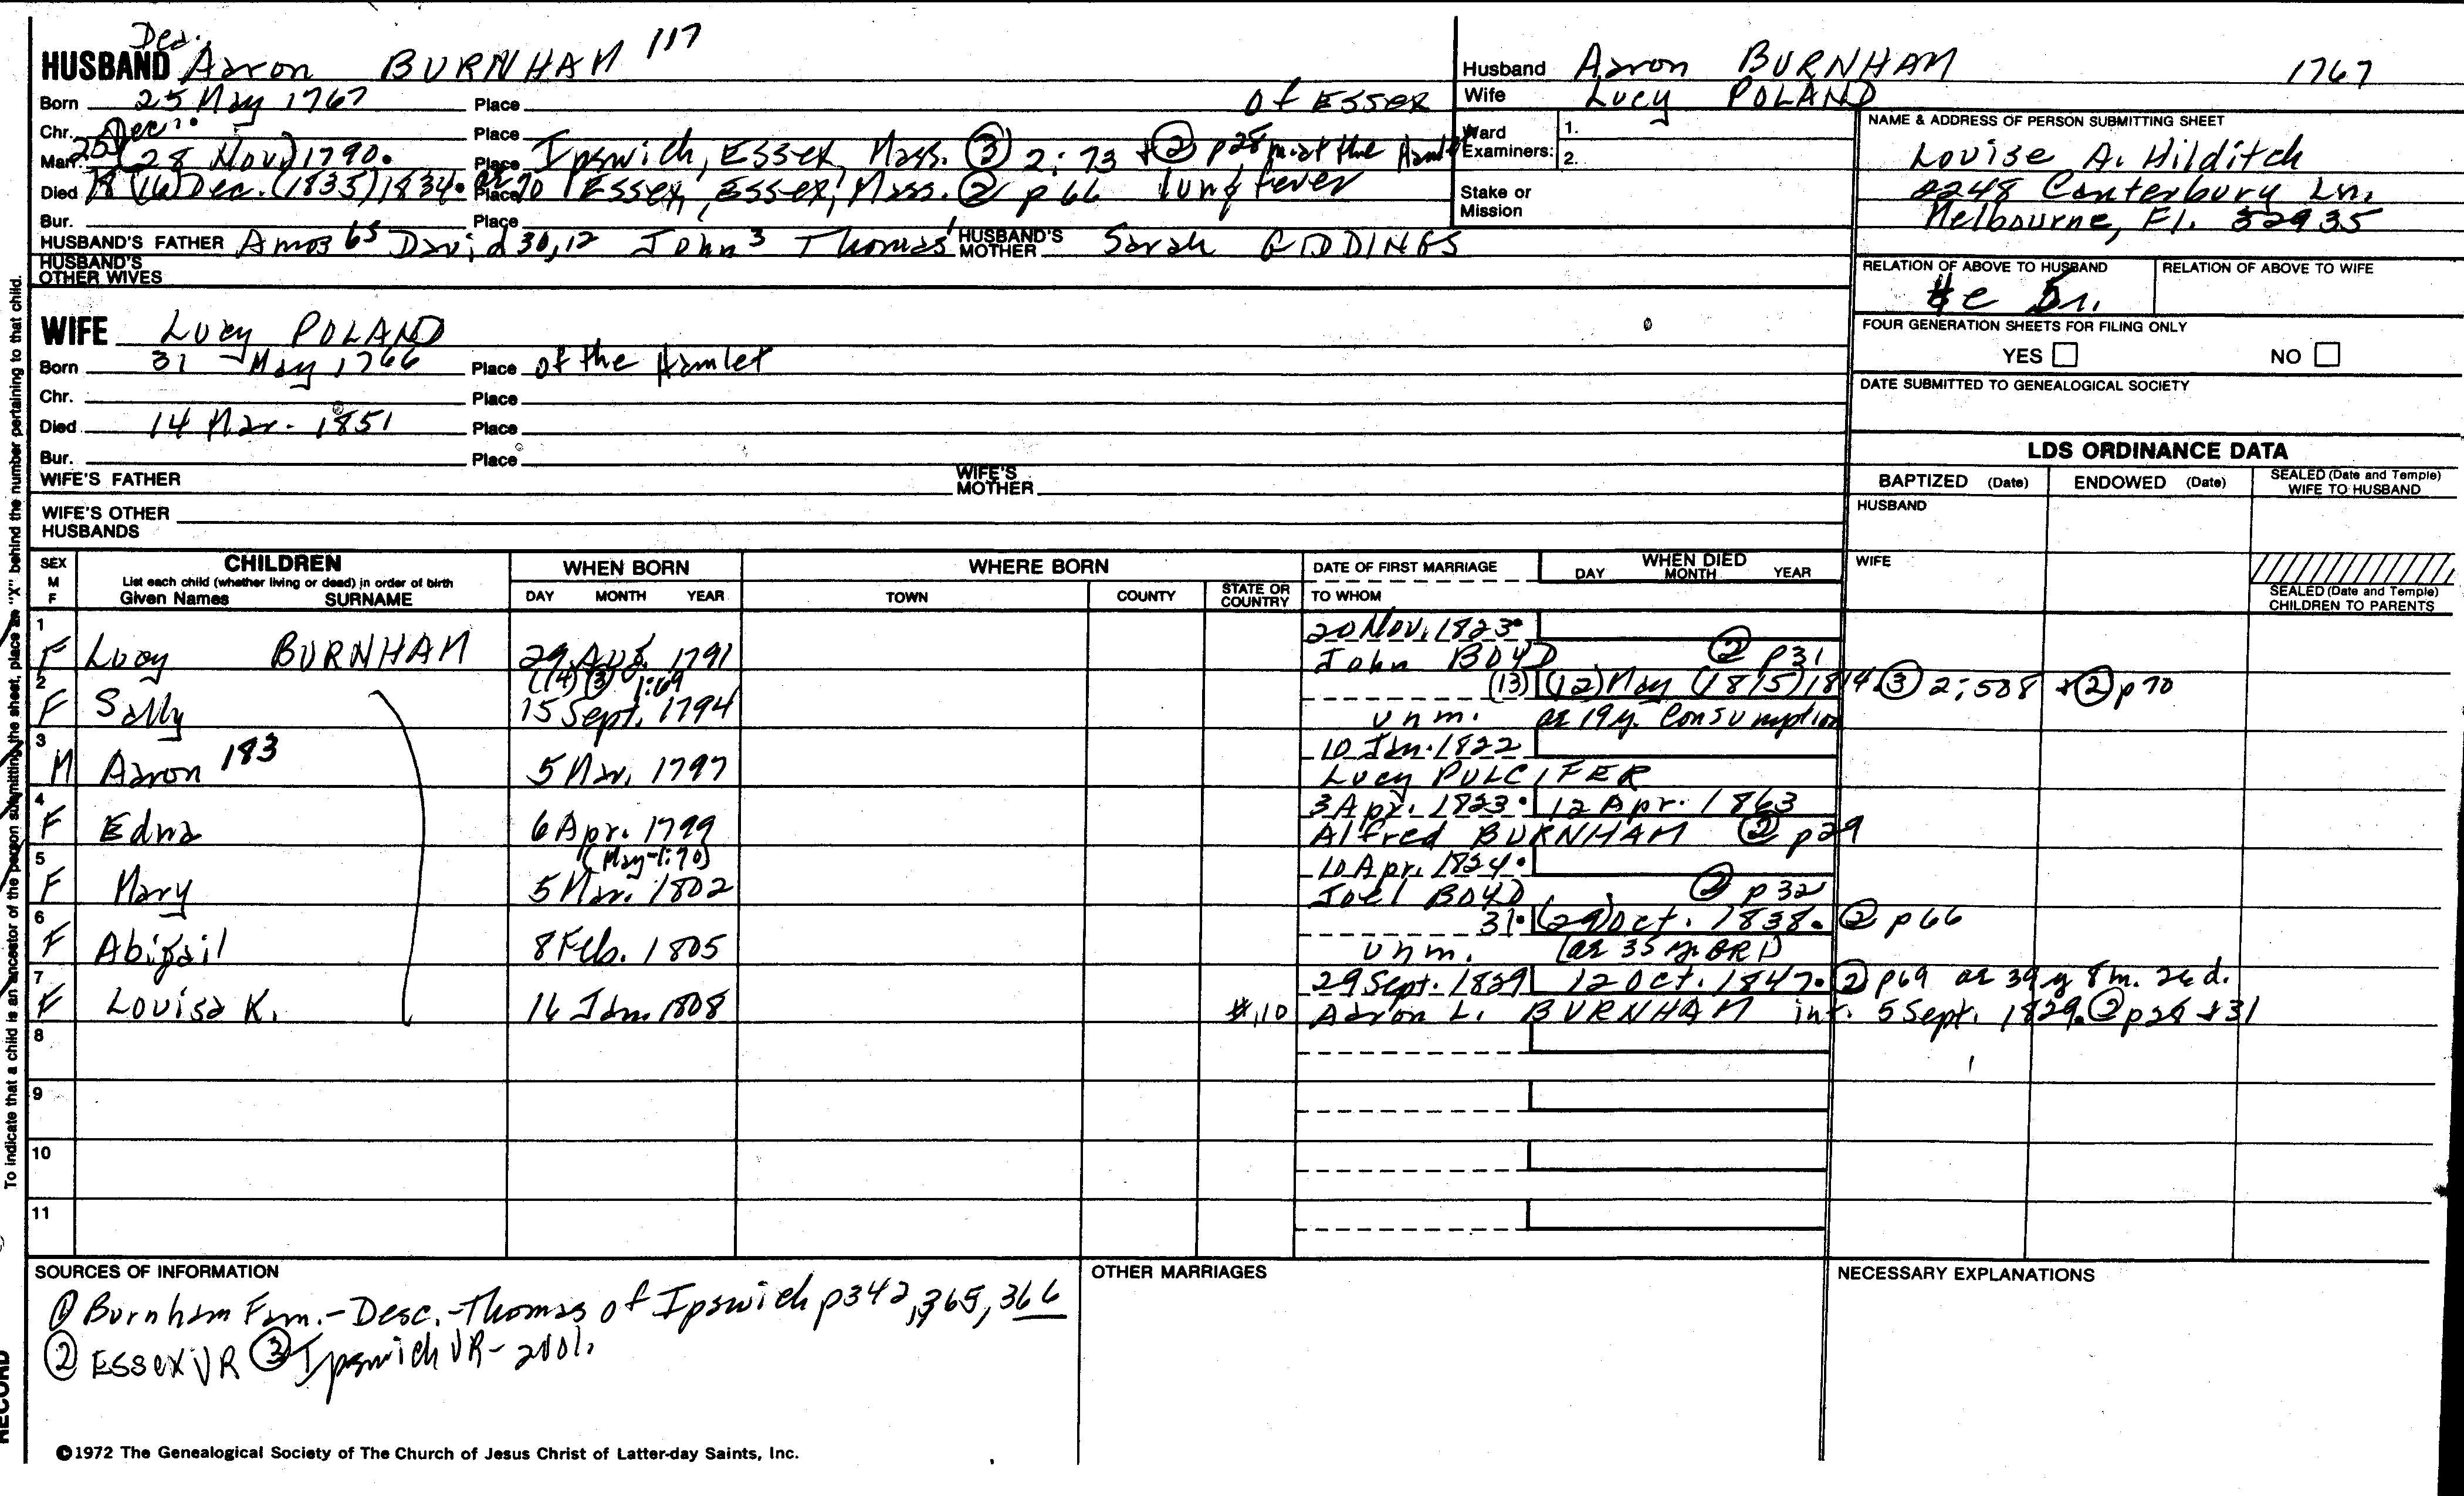 Dea.
HUSBAND Aaron BURNHAM 117
Born 25 May 1767 Place of Essex
Chr. Place
Dec.
Marr. 25 (28 Nov.) 1790. Place Ipswich, Essex, Mass. ③ 2:73 + ② p28 m. at the Hamlet
Died 18 (16) Dec. (1835) 1834. ae 70 Place Essex, Essex, Mass. ② p 66 lung fever
Bur. Place
HUSBAND'S FATHER Amos 65 David 30,12 John 3 Thomas 1 HUSBAND'S MOTHER Sarah GIDDINGS
HUSBAND'S OTHER WIVES
WIFE Lucy POLAND
Born 31 May 1766 Place of the Hamlet
Chr. Place
Died 14 Mar. 1851 Place
Bur. Place
WIFE'S FATHER WIFE'S MOTHER
WIFE'S OTHER HUSBANDS
Husband Aaron BURNHAM 1767
Wife Lucy POLAND
Ward Examiners: 1.
2.
Stake or Mission
NAME & ADDRESS OF PERSON SUBMITTING SHEET
Louise A. Hilditch
2248 Canterbury Ln.
Melbourne, Fl. 32935
RELATION OF ABOVE TO HUSBAND RELATION OF ABOVE TO WIFE
FOUR GENERATION SHEETS FOR FILING ONLY
YES NO
DATE SUBMITTED TO GENEALOGICAL SOCIETY
LDS ORDINANCE DATA
BAPTIZED (Date) ENDOWED (Date) SEALED (Date and Temple) WIFE TO HUSBAND
HUSBAND
WIFE
SEALED (Date and Temple) CHILDREN TO PARENTS
SEX M F CHILDREN WHEN BORN WHERE BORN DATE OF FIRST MARRIAGE WHEN DIED
List each child (whether living or dead) in order of birth
Given Names SURNAME DAY MONTH YEAR TOWN COUNTY STATE OR COUNTRY TO WHOM DAY MONTH YEAR
1 20 Nov. 1823.
F Lucy BURNHAM 29 Aug. 1791 John BOYD ② p31
2 (14) ③ 1:69 (13) (12) May (1815) 1814. ③ 2:508 + ② p70
F Sally 15 Sept. 1794 unm. ae 19 y. Consumption
3 10 Jan. 1822
M Aaron 183 5 Mar. 1797 Lucy PULCIFER
4 3 Apr. 1823. 12 Apr. 1863
F Edna 6 Apr. 1799 Alfred BURNHAM ② p29
5 (May-1:70) 10 Apr. 1824.
F Mary 5 Mar. 1802 Joel BOYD ② p32
6 31. (29) Oct. 1838. ② p66
F Abigail 8 Feb. 1805 unm. (ae 35 y. GR1)
7 29 Sept. 1829 12 Oct. 1847. ② p69 ae 39 y 8 m. 26 d.
F Louisa K. 16 Jan. 1808 #,10 Aaron L. BURNHAM int. 5 Sept. 1829. ② p28 + 31
8
9
10
11
SOURCES OF INFORMATION OTHER MARRIAGES NECESSARY EXPLANATIONS
① Burnham Fam.-Desc.-Thomas of Ipswich p342, 365, 366
② Essex VR ③ Ipswich VR-
©1972 The Genealogical Society of The Church of Jesus Christ of Latter-day Saints, Inc.
To indicate that a child is an ancestor of the person submitting the sheet, place an "X" behind the number pertaining to that child.
RECORD